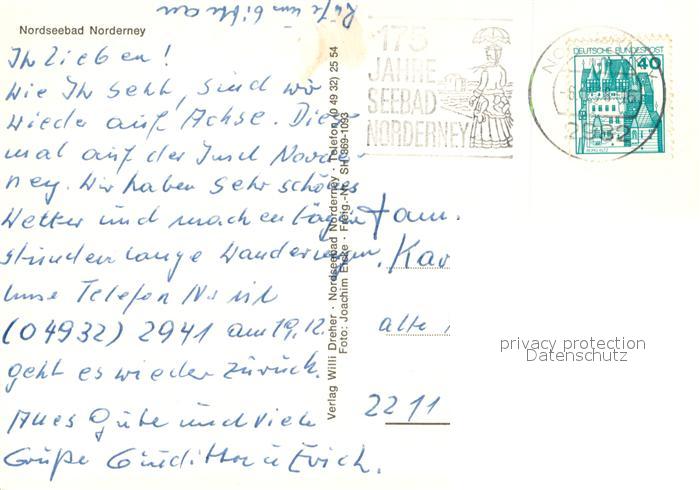 Nordseebad Norderney
Ihr Lieben!
Wie Ihr seht, sind wir
wieder auf Achse. Dies
mal auf der Insel Norder-
ney. Wir haben sehr schönes
Wetter und machen täglich
stundenlange Wanderungen.
Unse Telefon Nr ist
(04932) 2941 am 19.12.
geht es wieder zurück.
Alles Gute und viele
Grüße Günditta u Erich.
Verlag Willi Dreher · Nordseebad Norderney · Telefon (0 49 32) 25 54
Foto: Joachim Eicke · Freig.-Nr. SH 869-1093
175
JAHRE
SEEBAD
NORDERNEY
DEUTSCHE BUNDESPOST
40
2982
Fam.
Kar
alte
2211
privacy protection
Datenschutz